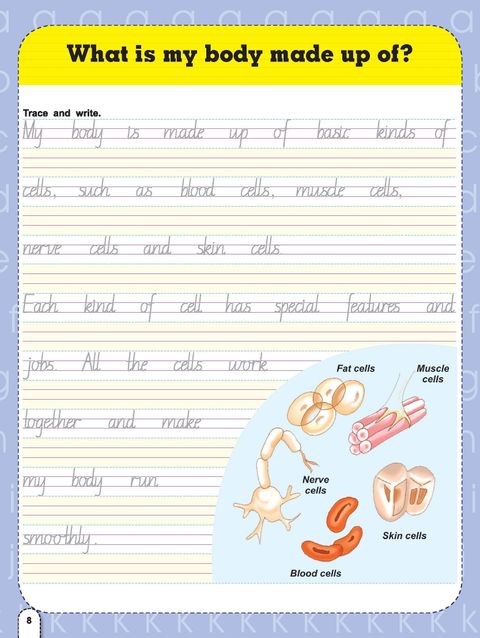 What is my body made up of?
Trace and write.
My body is made up of basic kinds of
cells, such as blood cells, muscle cells,
nerve cells and skin cells.
Each kind of cell has special features and
jobs. All the cells work
together and make
my body run
smoothly.
Fat cells
Muscle
cells
Nerve
cells
Skin cells
Blood cells
8